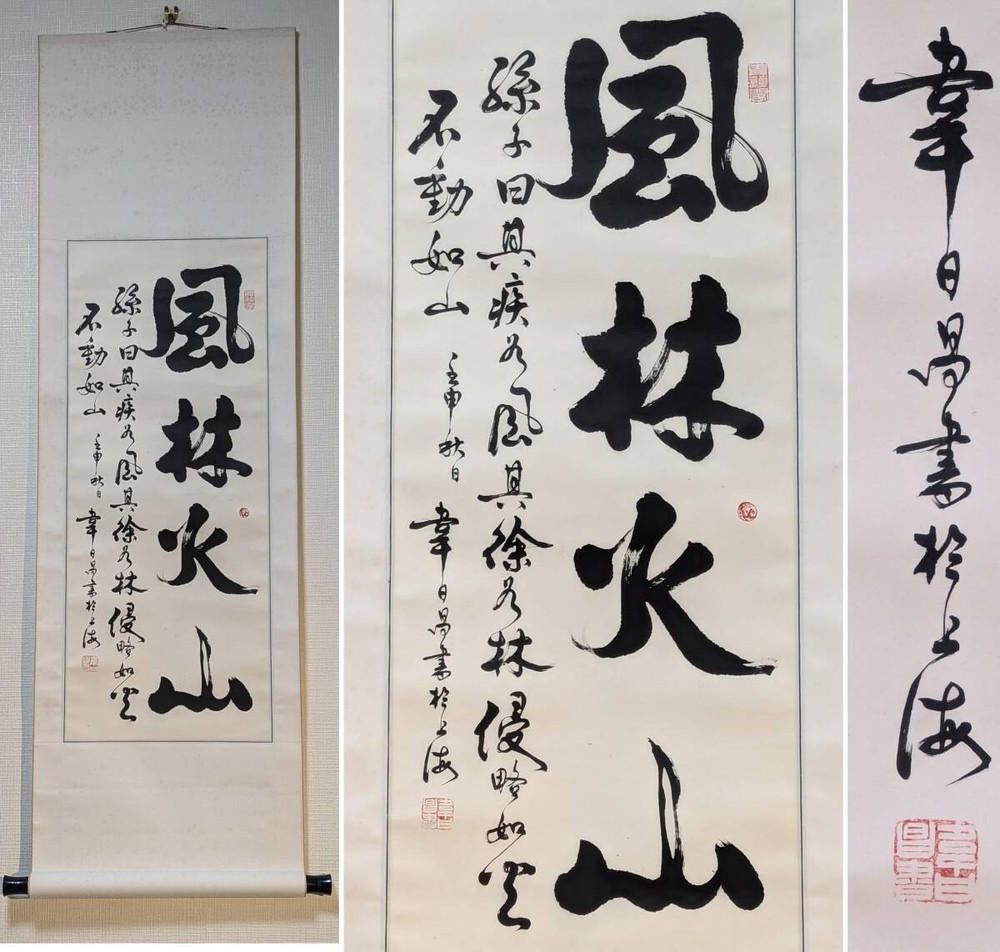 風林火山
孫子曰其疾若風其徐若林侵略如火
不動如山 壬申秋日 韋日昌書於上海
風林火山
孫子曰其疾若風其徐若林侵略如火
不動如山 壬申秋日 韋日昌書於上海
韋日昌書於上海